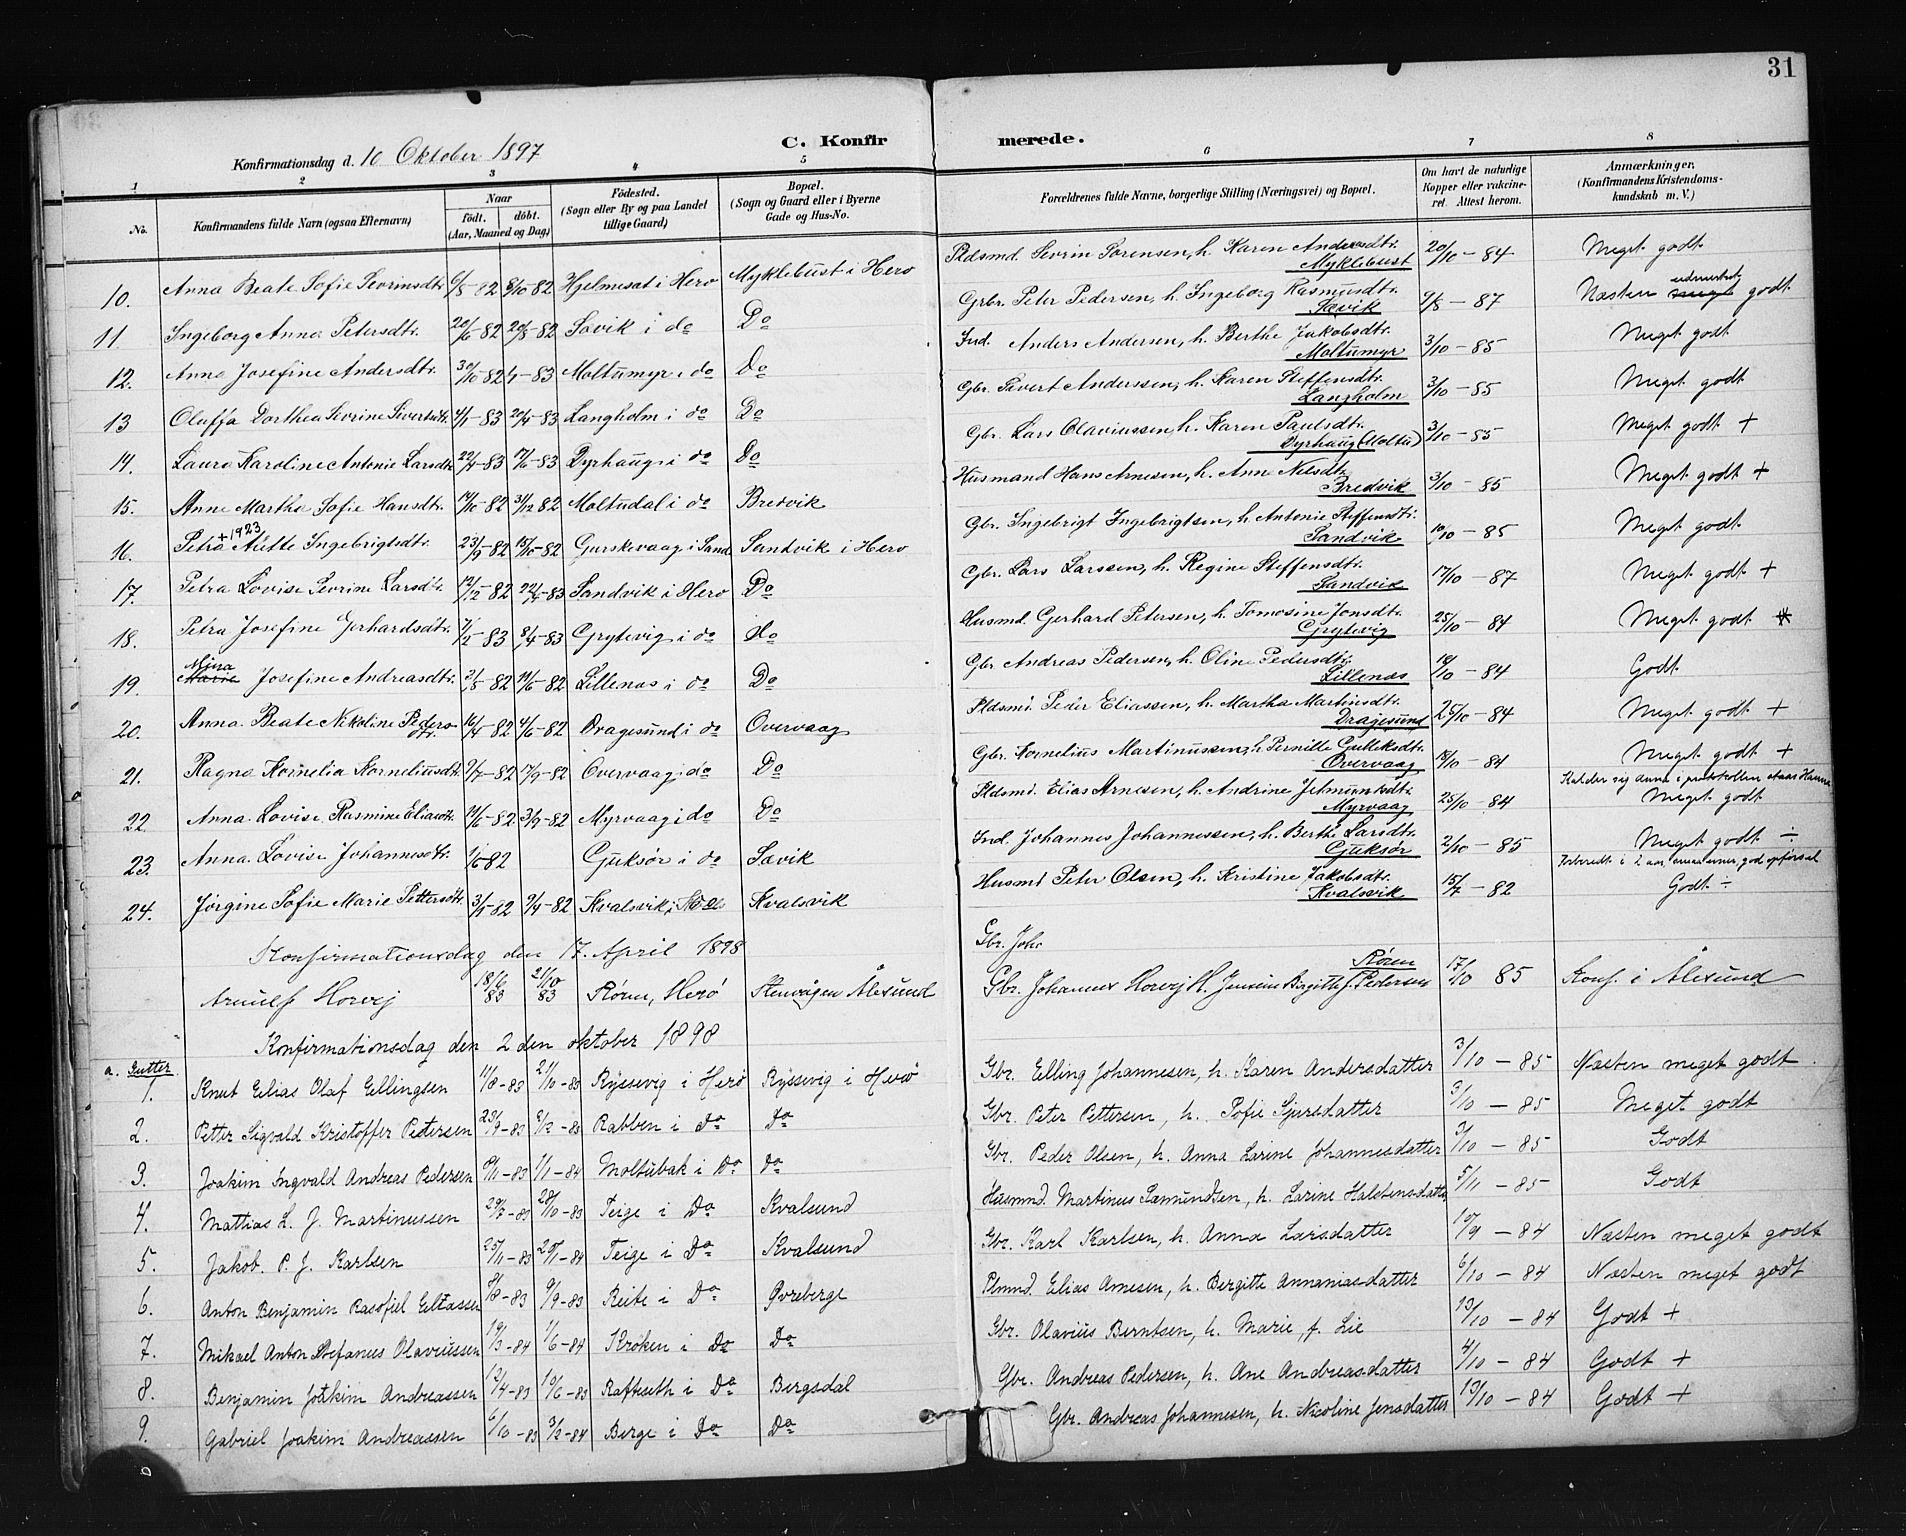 31
C. Konfirmerede.
Konfirmationsdag d. 10 Oktober 1897
1 2 3 4 5 6 7 8
No. Konfirmandens fulde Navn (ogsaa Efternavn) Naar födt. döbt. (Aar, Maaned og Dag) Födested. (Sogn eller By og paa Landet tillige Gaard) Bopæl. (Sogn og Gaard eller i Byerne Gade og Hus-No. Forældrenes fulde Navne, borgerlige Stilling (Næringsvei) og Bopæl. Om havt de naturlige Kopper eller vakcineret. Attest herom. Anmærkninger. (Konfirmandens Kristendomskundskab m. V.)
10. Anna Beate Sofie Sevrinsdtr. 6/8-82 8/10-82 Hjelmeset i Herö Myklebust i Herö Pldsmd. Sevrin Sörensen, h. Karen Andersdtr. Myklebust 20/10-84 Meget godt
11. Ingeborg Anna Petersdtr. 20/6-82 20/8-82 Sævik i do Do Grbr. Peter Pedersen, h. Ingeborg Rasmusdtr. Sævik 9/8-87 Næsten udmerket godt
12. Anna Josefine Andersdtr. 30/10-82 83 Moltumyr i do Do Ind. Anders Andersen, h. Berthe Jakobsdtr. Moltumyr 3/10-85 Meget godt
13 Oluffa Dorthea Sevrine Siversdtr. 4/1-83 20/4-83 Langholm i do Do Gbr. Sivert Anderssen, h. Karen Steffensdtr. Langholm 3/10-85 Meget godt
14. Laura Karoline Antonie Larsdtr. 22/4-83 17/6-83 Dyrhaug i do Do Gbr. Lars Olaviussen, h. Karen Paulsdtr. Dyrhaug (Moltu) 3/10-85 Meget godt +
15. Anne Martha Sofie Hansdtr. 14/10-82 31/12 82 Moltudal i do Bredvik Husmand Hans Arnesen, h. Ane Nilsdtr. Bredvik 3/10-85 Meget godt +
+1923
16. Petra Alette Ingebrigtsdtr. 23/9-82 15/10-82 Gurskevaag i Sand Sandvik i Herö Gbr. Ingebrigt Ingebrigtsen, h. Antonie Steffensdtr. Sandvik 10/10-85 Meget godt
17. Petra Lovise Sevrine Larsdtr. 12/12-82 22/4-83 Sandvik i Herö Do Gbr. Lars Larssen, h. Regine Steffensdtr. Sandvik 17/10-87 Meget godt +
18. Petra Josefine Gerhardsdtr. 7/2-83 8/4-83 Grytevig i do do Husmd. Gerhard Petersen, h. Tomosine Jonsdtr. Grytevig 25/10-84 Meget godt
19. Mina Josefine Andreasdtr. 2/5-82 11/6-82 Lillenes i do Do Gbr. Andreas Pedersen, h. Oline Pedersdtr. Lillenæs 10-84 Godt
20. Anna Beate Nikoline Pedersdtr. 16/4-82 4/6-82 Dragesund i do Overvaag Pldsmd. Peder Eliassen, h. Martha Martinsdtr. Dragesund 25/10-84 Meget godt +
21. Ragna Kornelia Korneliusdtr. 9/7-82 17/9-82 Overvaag i do Do Gbr. Kornelius Martinussen, h. Pernille Gulleksdtr. Overvaag 18/10-84 Meget godt +
22. Anna Lovise Rasmine Eliasdtr. 11/6-82 3/9-82 Myrvaag i do Do Pldsmd. Elias Arnesen, h. Andrine Jetmundsdtr. Myrvaag 25/10-84 Kalder sig Anna i protokollen staar Hanna Meget godt
23. Anna Lovise Johannesdtr. 1/6-82 Gjuksør i do Sævik Ind. Johannes Johannessen, h. Berthe Larsdtr. Gjuksør 2/10-85 Meget godt ÷
24. Jørgine Sofie Marie Pettersdtr. 3/1-82 9/4-82 Kvalsvik i Kvalsvik Husmd Peter Olsen, h. Kristine Jakobsdtr. Kvalsvik 15/7-82 Forberedt i 2 aar god opførsel Godt ÷
Konfirmationsdag den 17. April 1898 Gbr. Joh
Arnulf Horvej 18/6 83 21/10 83 Røren, Herö Stenvågen Ålesund Gbr. Johannes Horvej H. Jensine Birgitte J. Pedersen Røren 17/10 85 Konf. i Ålesund
Konfirmationsdag den 2 den oktober 1898
a. Gutter.
1. Knut Elias Olaf Ellingsen 11/8-83 21/10-83 Ryssevig i Herö Ryssevig i Herö Gbr. Elling Johannesen, h. Karen Andersdatter 3/10-85 Næsten meget godt
2. Petter Sigvald Kristoffer Petersen 23/9-83 2/12-83 Rabben i Do Do Gbr. Peter Pettersen, h. Sofie Sjursdatter 3/10-85 Meget godt
3. Joakim Ingvald Andreas Pedersen 8/11-83 1/1-84 Moltubak i Do Do Gbr. Peder Olsen, h. Anna Larine Johannesdatter 3/10-85 Godt
4. Mattias L. J. Martinussen 29/7-83 28/10-83 Teige i Do Kvalsund Husmnd. Martinus Samundsen, h. Larine Halstensdatter 5/11-85 Godt
5. Jakob. P. J. Karlsen 25/11-83 20/1-84 Teige i Do Kvalsund Gbr. Karl Karlsen, h. Anna Larsdatter 10/9-84 Næsten meget godt
6. Anton Benjamin Rasofiel Eliassen 8/8-83 9/9-83 Reite i Do Øvreberge Plmnd. Elias Arnesen, h. Bergitte Annaniasdatter 6/10-84 Næsten meget godt
7. Mikael Anton Stefanus Olaviussen 19/3-84 1/6-84 Krøken i Do Do Gbr. Olavius Berntsen, h. Marie, f. Lie 13/10-84 Godt +
8. Benjamin Joakim Andreassen 12/4-83 10/6-83 Rafteseth i Do Bergsdal Gbr. Andreas Pedersen, h. Ane Andreasdatter 4/10-84 Godt +
9. Gabriel Joakim Andreassen 6/10-83 3/2-84 Berge i Do Do Gbr. Andreas Johannesen, h. Nicoline Jensdatter 13/10-84 Godt +